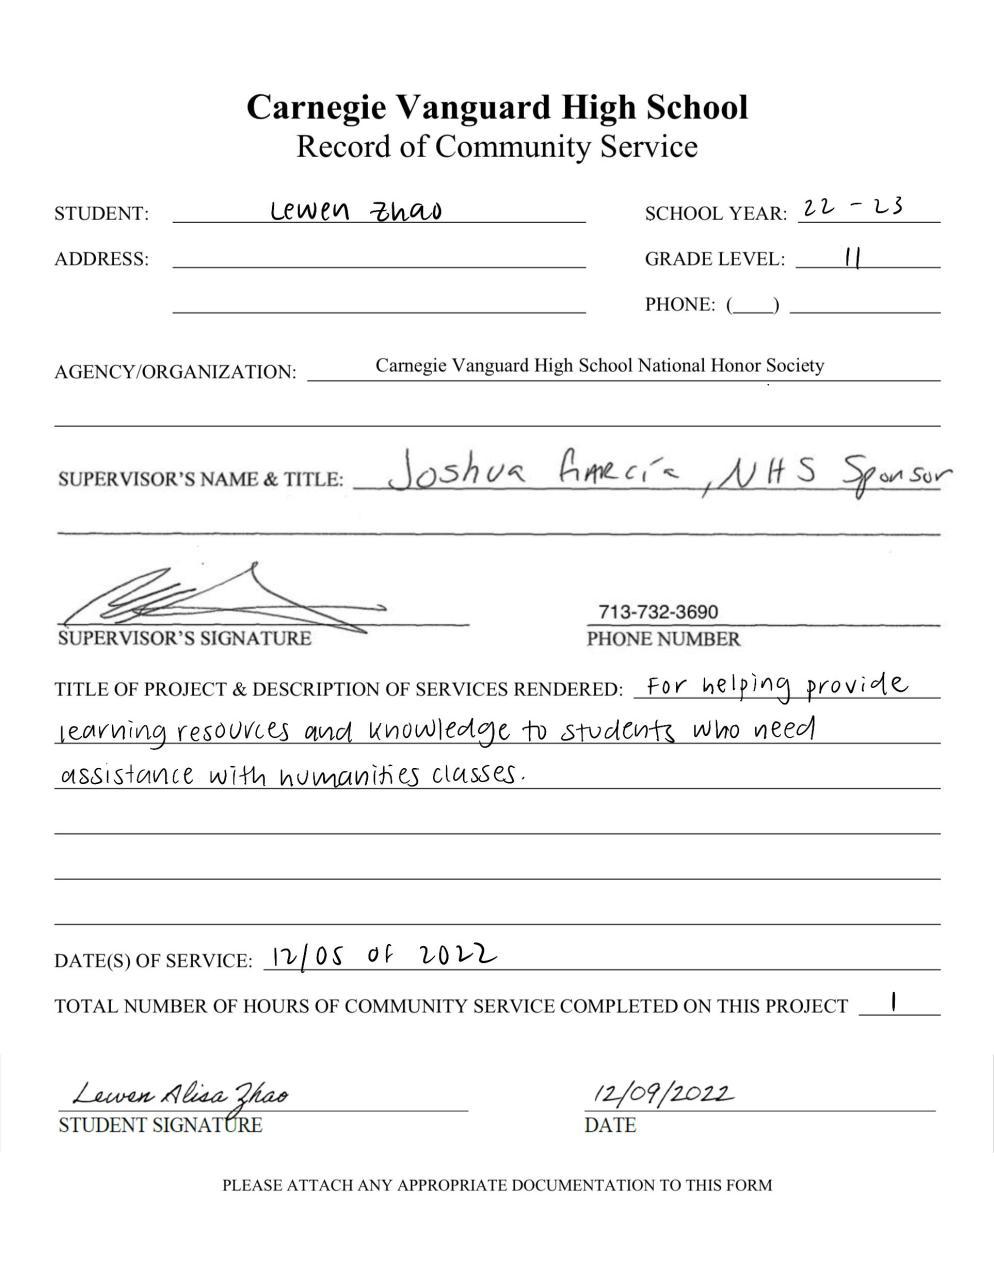 Carnegie Vanguard High School
Record of Community Service
STUDENT: Lewen Zhao SCHOOL YEAR: 22 - 23
ADDRESS: GRADE LEVEL: 11
PHONE: (___)
AGENCY/ORGANIZATION: Carnegie Vanguard High School National Honor Society
SUPERVISOR'S NAME & TITLE: Joshua García, NHS Sponsor
713-732-3690
SUPERVISOR'S SIGNATURE PHONE NUMBER
TITLE OF PROJECT & DESCRIPTION OF SERVICES RENDERED: For helping provide
learning resources and knowledge to students who need
assistance with humanities classes.
DATE(S) OF SERVICE: 12/05 of 2022
TOTAL NUMBER OF HOURS OF COMMUNITY SERVICE COMPLETED ON THIS PROJECT 1
Lewen Alisa Zhao 12/09/2022
STUDENT SIGNATURE DATE
PLEASE ATTACH ANY APPROPRIATE DOCUMENTATION TO THIS FORM